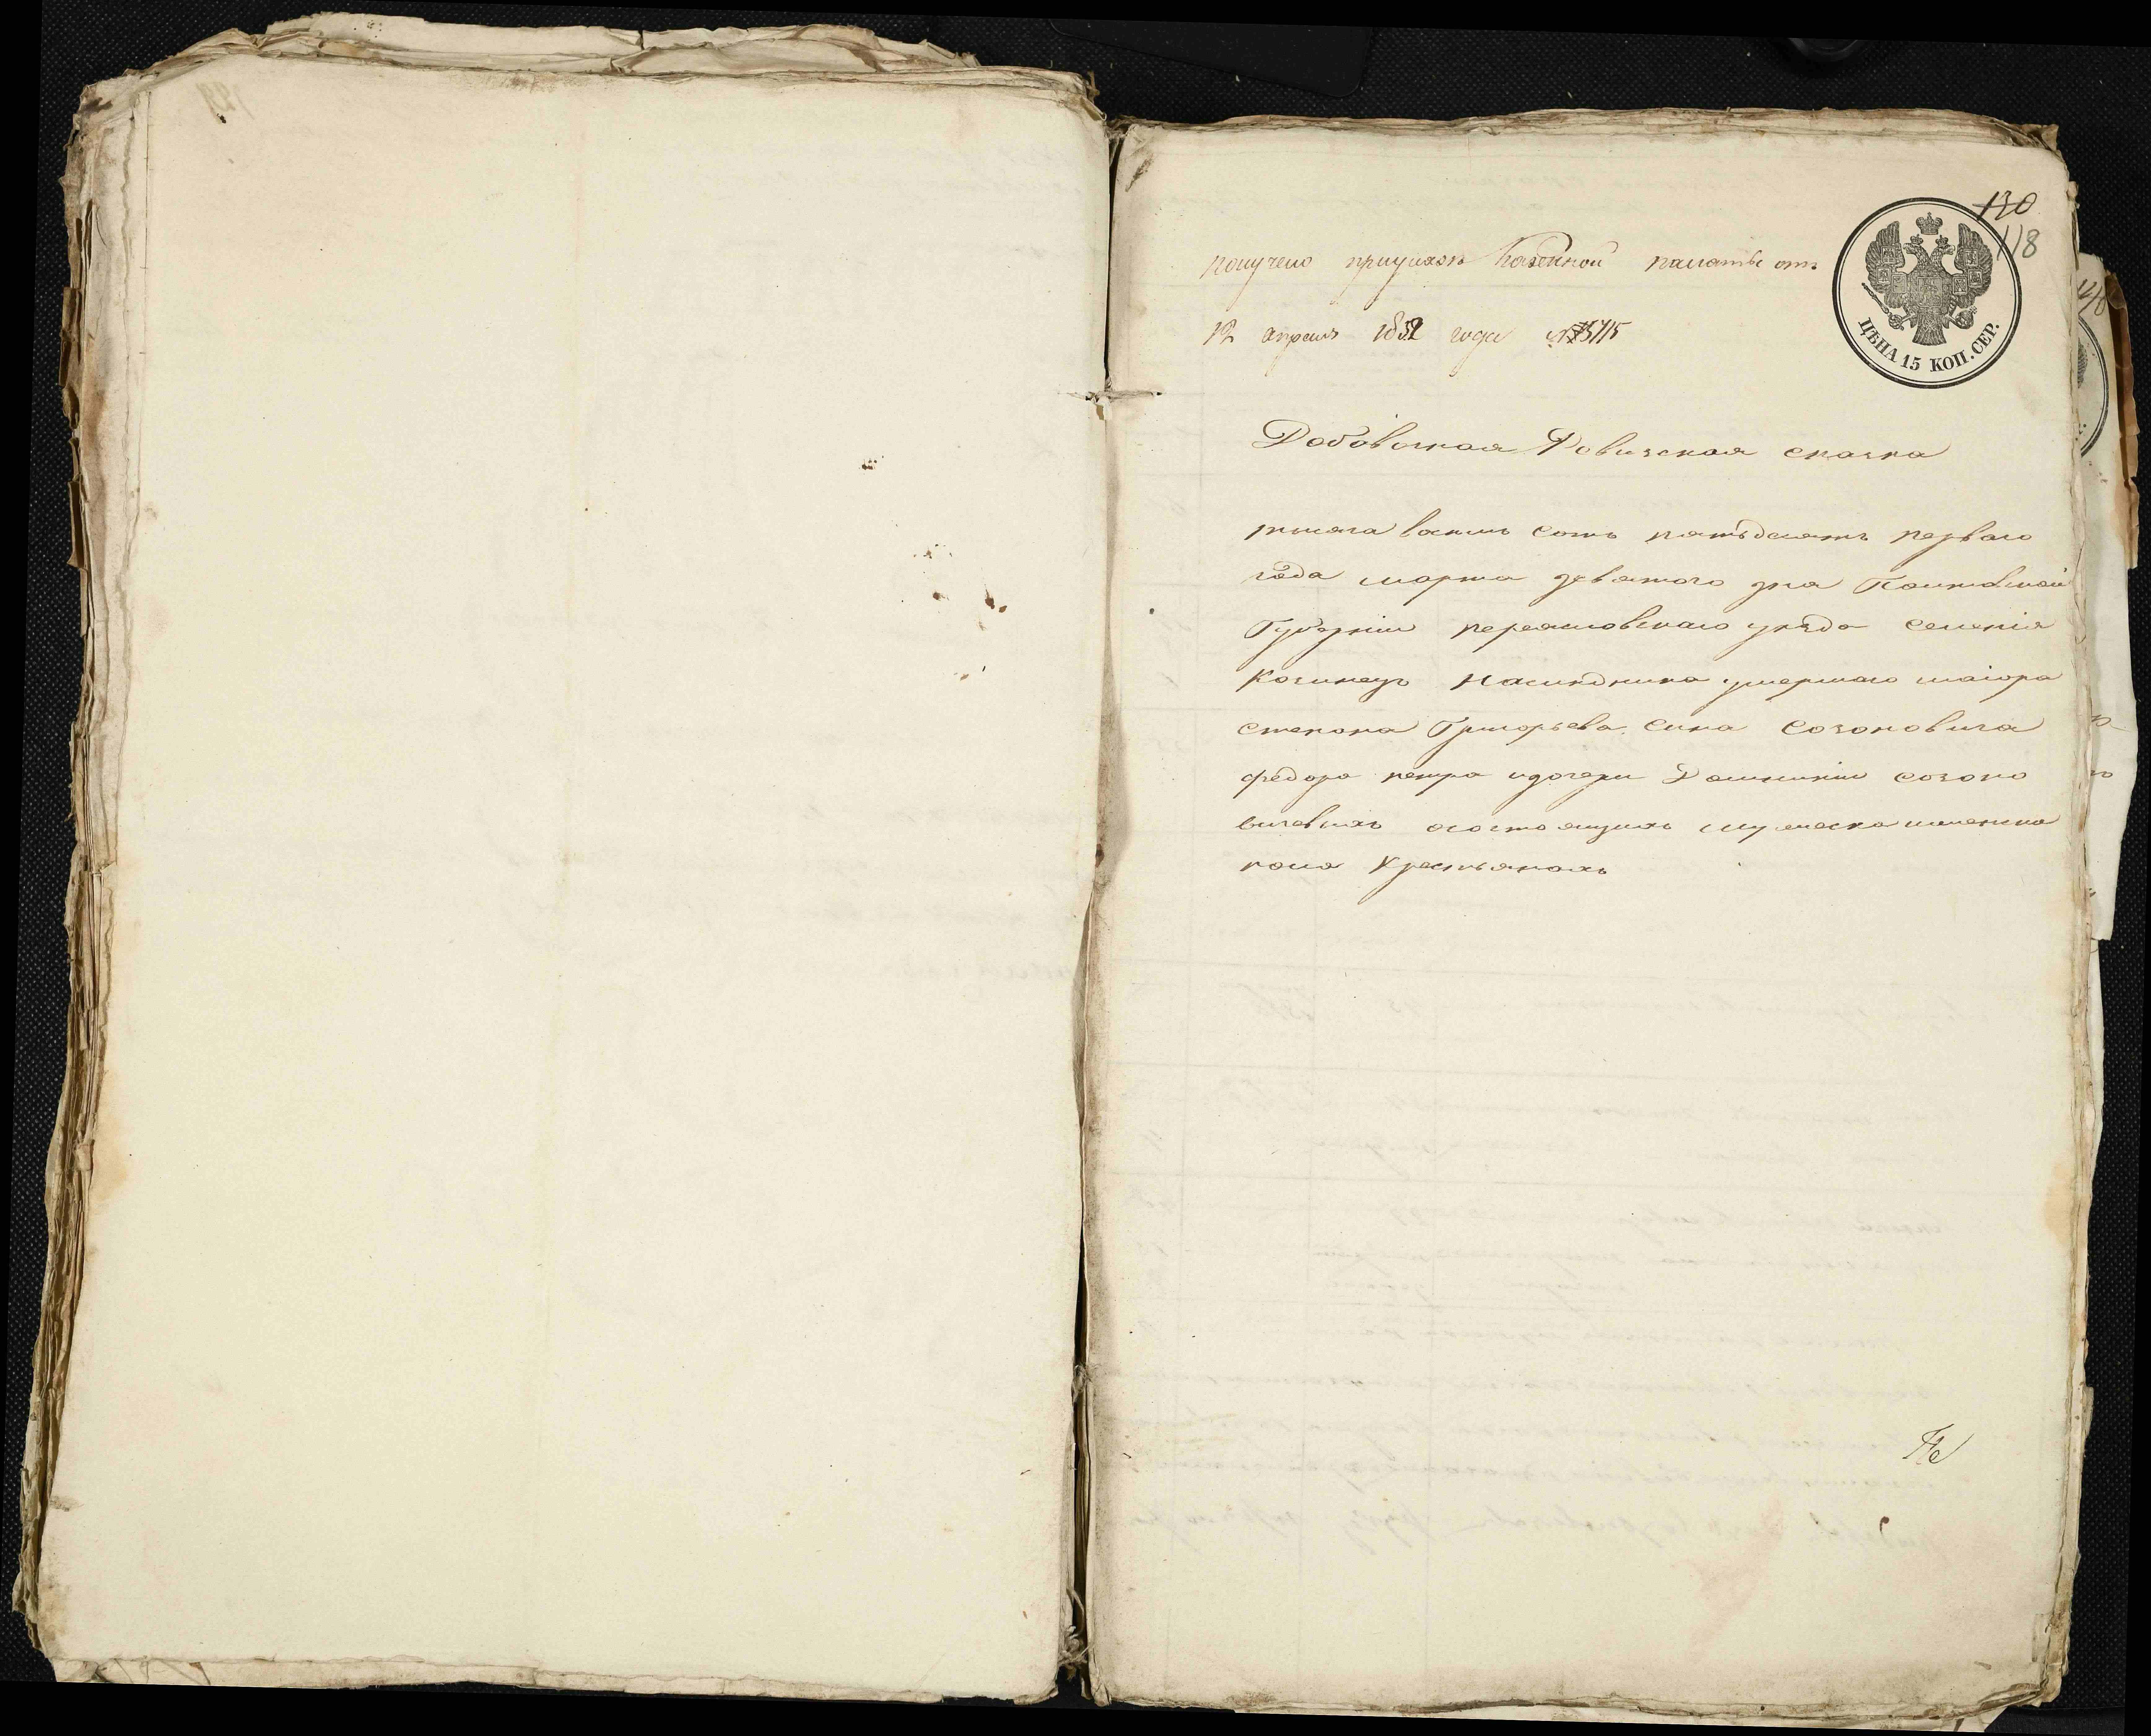 130
118
получено приуказѣ Казенной палаты отъ
12 апреля 1852 года №
ЦѢНА 15 КОП. СЕР.
Добовочная Ревизская сказка
тысяча восимъ сотъ пятьдесятъ перваго
года марта девятого дня Полтавской
Губернии переясловскаго уезда селенія
Козинецъ наследника умершаго маіора
степана Григорьева сина Созоновича
федора петра идочери созоно
вичевихъ осостоящихъ мужеска иженска
пола крестьянахъ